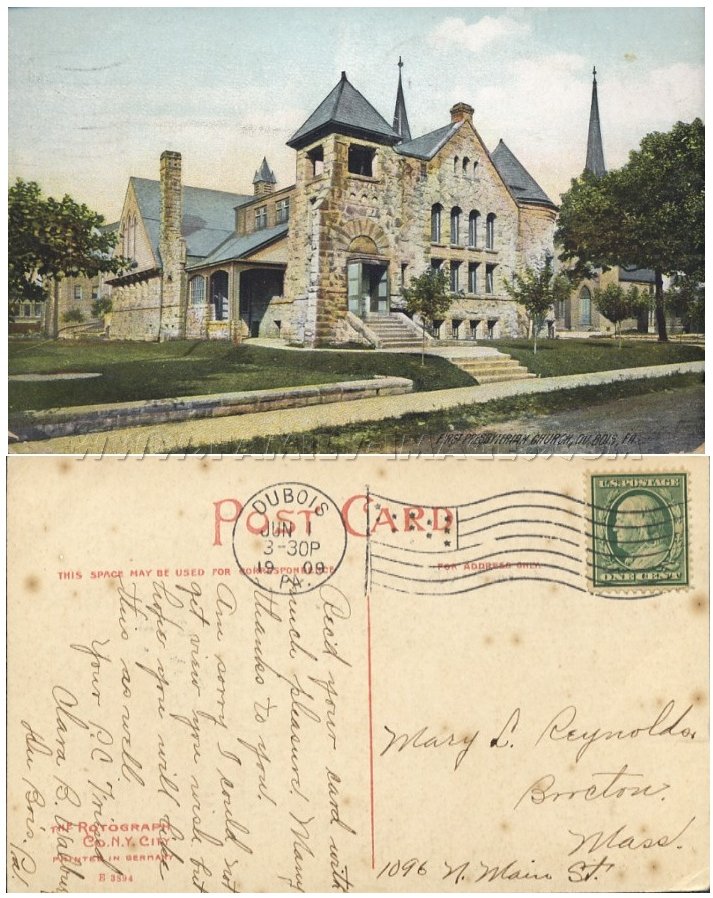 FIRST PRESBYTERIAN CHURCH, DU BOIS, PA.
POST CARD
DUBOIS
JUN 1
3-30P
1909
PA.
U.S. POSTAGE
ONE CENT
THIS SPACE MAY BE USED FOR CORRESPONDENCE
FOR ADDRESS ONLY
Rec'd your card with
much pleasure. Many
thanks to you.
Am sorry I could not
get view you wish but
hope you will like
this as well.
Your P.C. Friend
Clara B.
Du Bois. Pa.
Mary L. Reynolds.
Brocton.
Mass.
1096 N. Main St.
THE ROTOGRAPH
CO. N.Y. CITY
PRINTED IN GERMANY
E 3894